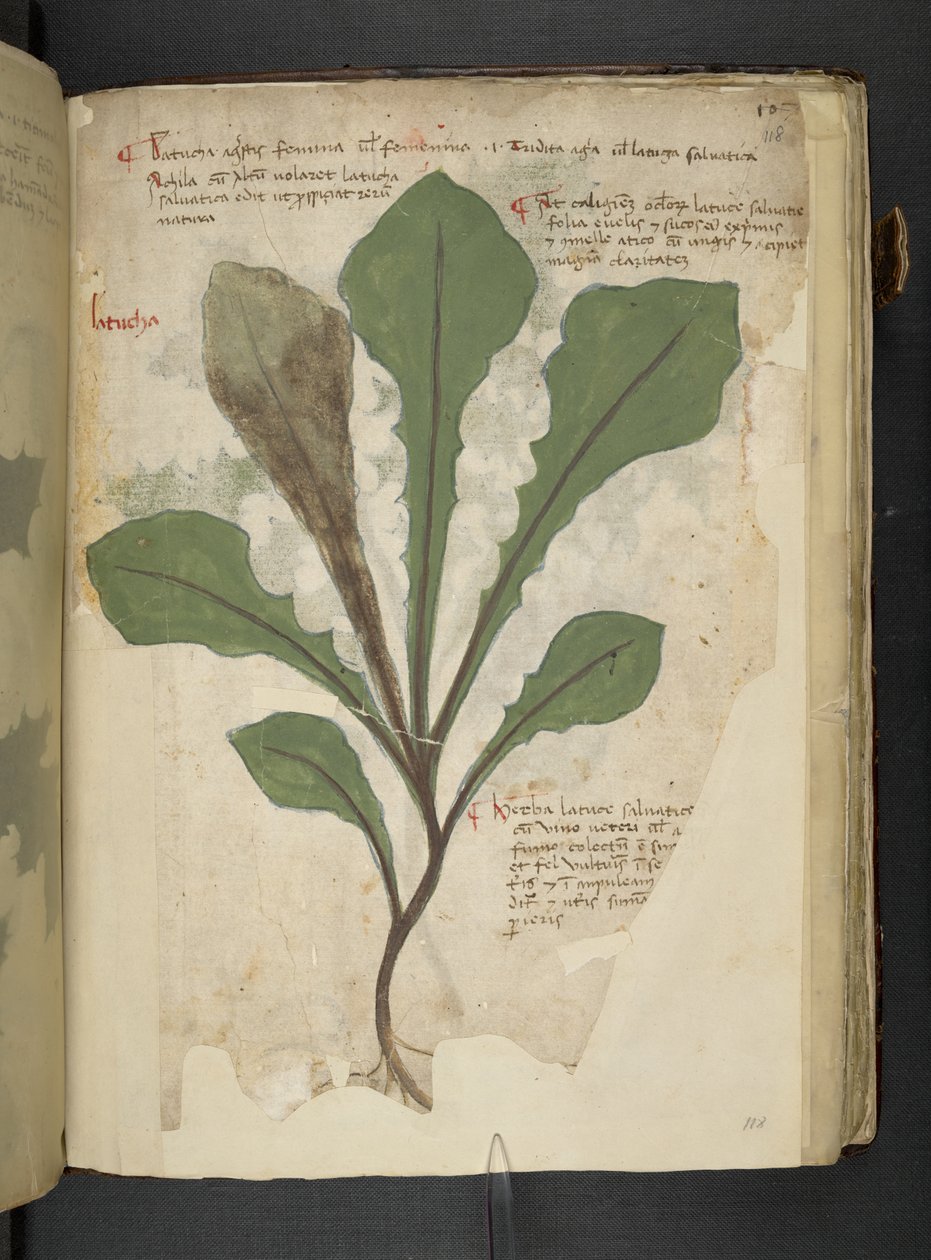 10
118
¶ Latucha agrestis femina ul femenina .i. Tridita agria ul latuga salvatica
Achila cu altu volaret latucha
salvatica edit ut pspiciat reru
natura
¶ At caligiez oclorz latuce salvatice
folia evelis ⁊ sucos ei exprimis
⁊ 9melle atico cu ungis ⁊ acipiet
magna claritatez
latucha
¶ Herba latuce salvatice
cu vino veteri ul a
fumo colectu e sun
et fel vulturis i se
⁊ i ampuleam
dit ⁊ uteris suma
pieris
118